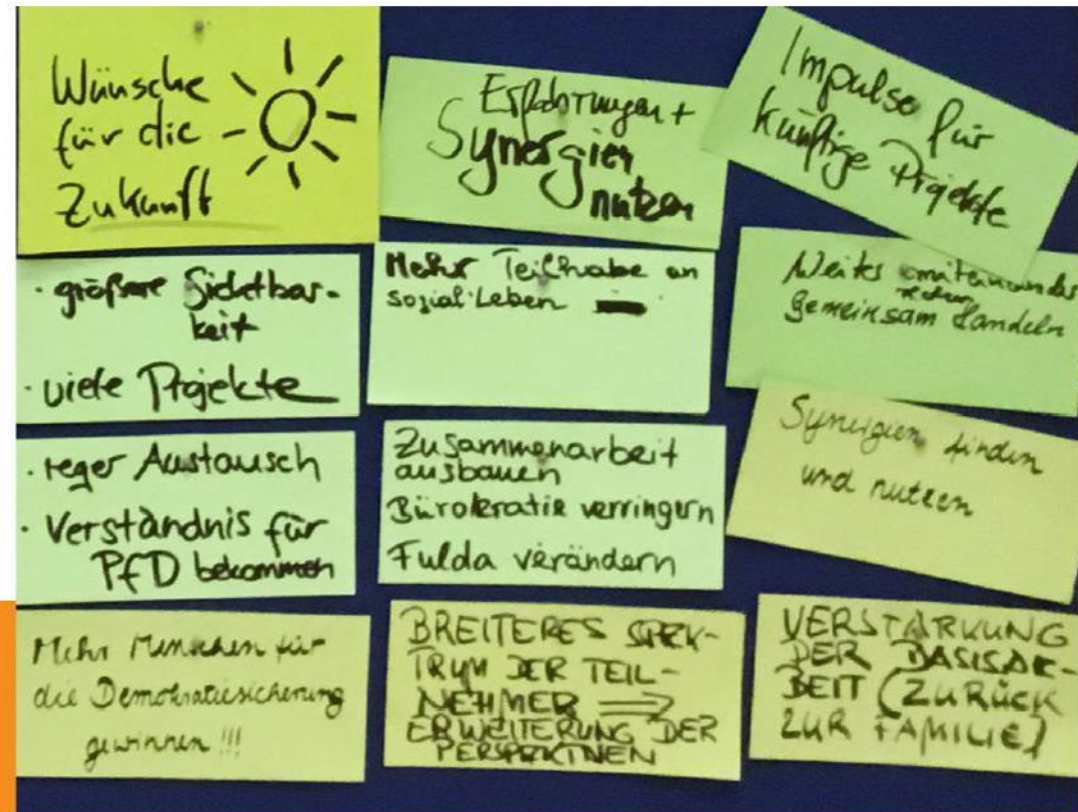 Wünsche
für die
Zukunft
Erfahrungen +
Synergien
nutzen
Impulse für
künftige Projekte
· größere Sichtbar-
keit
· viele Projekte
Mehr Teilhabe an
sozial. Leben
Weiter miteinander
reden
gemeinsam handeln
· reger Austausch
· Verständnis für
PfD bekommen
Zusammenarbeit
ausbauen
Bürokratie verringern
Fulda verändern
Synergien finden
und nutzen
Mehr Menschen für
die Demokratiesicherung
gewinnen !!!
BREITERES SPEK-
TRUM DER TEIL-
NEHMER ⟹
ERWEITERUNG DER
PERSPEKTIVEN
VERSTÄRKUNG
DER BASISAR-
BEIT (ZURÜCK
ZUR FAMILIE)